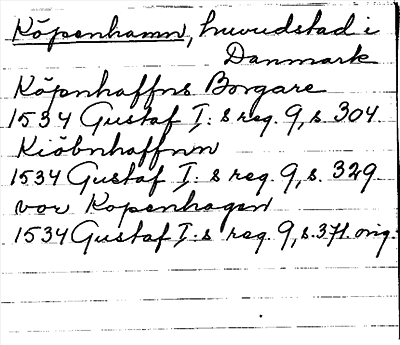 Köpenhamn, huvudstad i
Danmark
Köpnhaffns Borgare
1534 Gustaf I:s reg. 9, s. 304
Kiöbnhaffnn
1534 Gustaf I:s reg. 9, s. 329
vor Kopenhagen
1534 Gustaf I:s reg. 9, s. 371. orig.